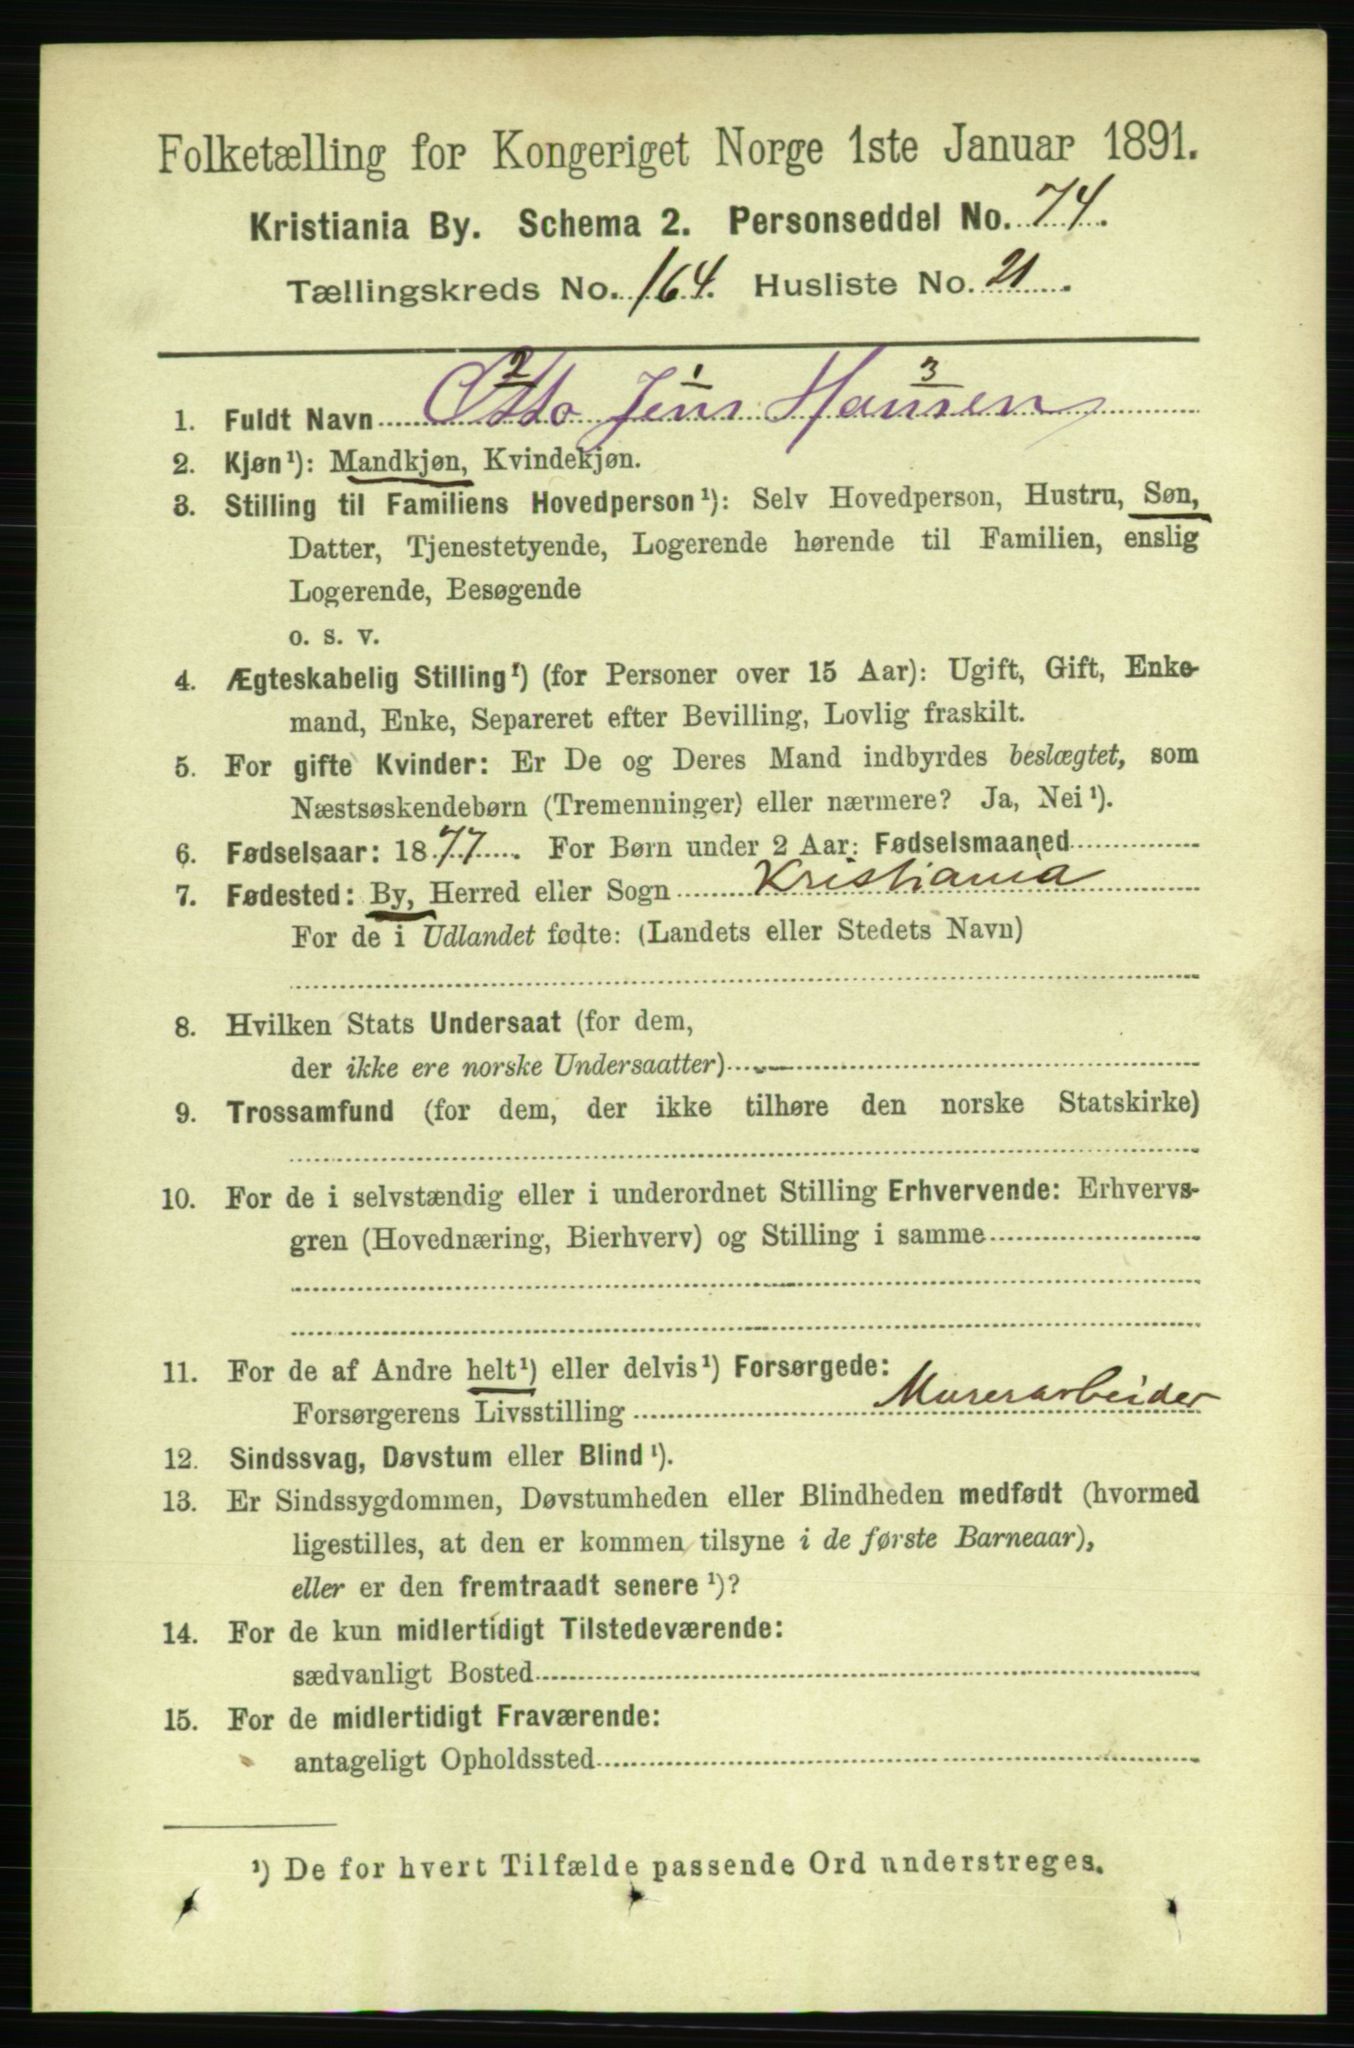 Folketælling for Kongeriget Norge 1ste Januar 1891.
Kristiania By. Schema 2. Personseddel No. 74.
Tællingskreds No. 164. Husliste No. 21.
2 1 3
1. Fuldt Navn Otto Jens Hansen
2. Kjøn¹): Mandkjøn, Kvindekjøn.
3. Stilling til Familiens Hovedperson¹): Selv Hovedperson, Hustru, Søn,
Datter, Tjenestetyende, Logerende hørende til Familien, enslig
Logerende, Besøgende
o. s. v.
4. Ægteskabelig Stilling¹) (for Personer over 15 Aar): Ugift, Gift, Enke-
mand, Enke, Separeret efter Bevilling, Lovlig fraskilt.
5. For gifte Kvinder: Er De og Deres Mand indbyrdes beslægtet, som
Næstsøskendebørn (Tremenninger) eller nærmere? Ja, Nei¹).
6. Fødselsaar: 1877. For Børn under 2 Aar: Fødselsmaaned
7. Fødested: By, Herred eller Sogn Kristiania
For de i Udlandet fødte: (Landets eller Stedets Navn)
8. Hvilken Stats Undersaat (for dem,
der ikke ere norske Undersaatter)
9. Trossamfund (for dem, der ikke tilhøre den norske Statskirke)
10. For de i selvstændig eller i underordnet Stilling Erhvervende: Erhvervs-
gren (Hovednæring, Bierhverv) og Stilling i samme
11. For de af Andre helt¹) eller delvis¹) Forsørgede:
Forsørgerens Livsstilling Murerarbeider
12. Sindssvag, Døvstum eller Blind¹).
13. Er Sindssygdommen, Døvstumheden eller Blindheden medfødt (hvormed
ligestilles, at den er kommen tilsyne i de første Barneaar),
eller er den fremtraadt senere¹)?
14. For de kun midlertidigt Tilstedeværende:
sædvanligt Bosted
15. For de midlertidigt Fraværende:
antageligt Opholdssted
¹) De for hvert Tilfælde passende Ord understreges.